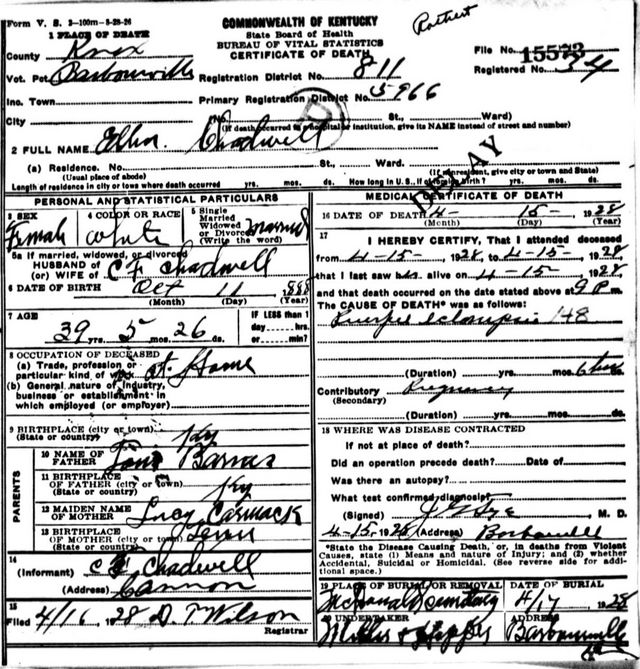 Form V. S. 3-100m-8-28-26
COMMONWEALTH OF KENTUCKY
State Board of Health
BUREAU OF VITAL STATISTICS
CERTIFICATE OF DEATH
1 PLACE OF DEATH
County Knox
File No. 15573
Vot. Pct Barbourville Registration District No. 811 Registered No. 34
Inc. Town Primary Registration District No. 5966
City No. St., Ward)
(If death occurred in a hospital or institution, give its NAME instead of street and number)
2 FULL NAME Ellen Chadwell
DELAY
(a) Residence. No. St., Ward.
(Usual place of abode) (If nonresident, give city or town and State)
Length of residence in city or town where death occurred yrs. mos. ds. How long in U. S., if of foreign birth? yrs. mos. ds.
PERSONAL AND STATISTICAL PARTICULARS
3 SEX Female
4 COLOR OR RACE white
5 Single Married Widowed or Divorced (Write the word) Married
5a If married, widowed, or divorced
HUSBAND of
(or) WIFE of C F Chadwell
6 DATE OF BIRTH Oct 11 1888
(Month) (Day) (Year)
7 AGE
39 yrs. 5 mos. 26 ds.
IF LESS than 1 day----hrs. or----min?
8 OCCUPATION OF DECEASED
(a) Trade, profession or
particular kind of work at Home
(b) General nature of industry,
business or establishment in
which employed (or employer)
9 BIRTHPLACE (city or town)
(State or country) Ky
PARENTS
10 NAME OF
FATHER
11 BIRTHPLACE
OF FATHER (city or town)
(State or country) Ky
12 MAIDEN NAME
OF MOTHER Lucy Carmack
13 BIRTHPLACE
OF MOTHER (city or town)
(State or country) Tenn
14
(Informant) C F Chadwell
(Address) Cannon
15
Filed 4/16 1928 D. T Wilson
Registrar
MEDICAL CERTIFICATE OF DEATH
16 DATE OF DEATH 4- 15- 1928
(Month) (Day) (Year)
17
I HEREBY CERTIFY, That I attended deceased
from 4-15-, 1928 to 4-15-, 1928
that I last saw her alive on 4-15-, 1928
and that death occurred on the date stated above at 9 P m.
The CAUSE OF DEATH* was as follows:
148
(Duration) yrs. mos. ds.
Contributory Pregnancy
(Secondary)
(Duration) yrs. mos. ds.
18 WHERE WAS DISEASE CONTRACTED
If not at place of death?
Did an operation precede death? Date of
Was there an autopsy?
What test confirmed diagnosis?
(Signed) M. D.
4-15, 1928 (Address)
*State the Disease Causing Death, or, in deaths from Violent
Causes, state (1) Means and nature of Injury; and (2) whether
Accidental, Suicidal or Homicidal. (See reverse side for addi-
tional space.)
19 PLACE OF BURIAL OR REMOVAL McDonald Cemetary
DATE OF BURIAL 4/17, 1928
20 UNDERTAKER
ADDRESS Barbourville